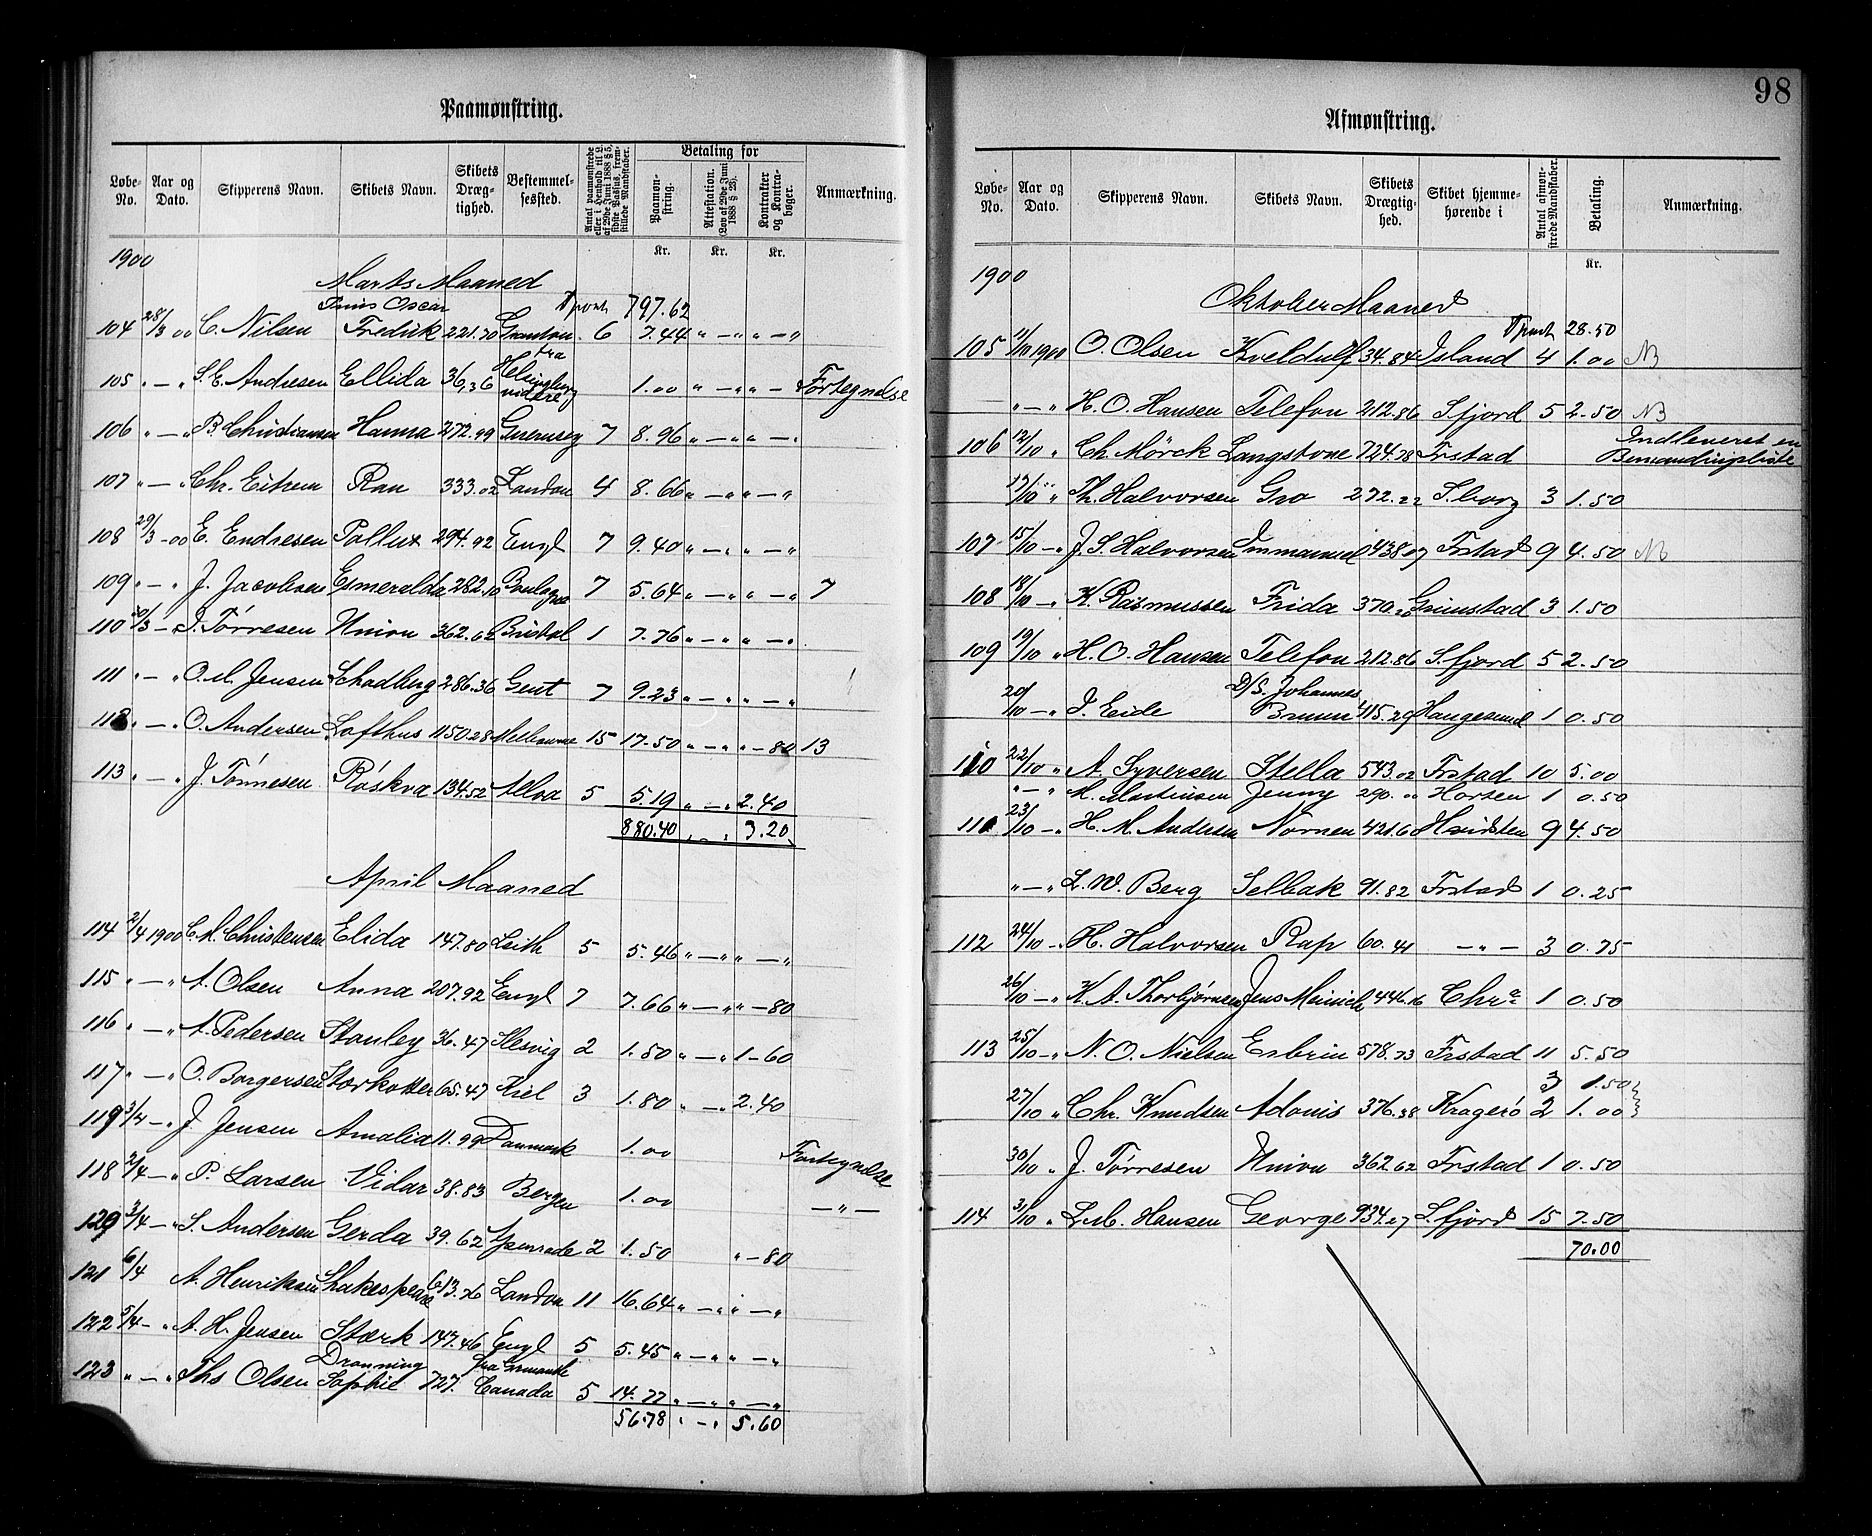 98
Paamønstring.
Løbe-No. Aar og Dato. Skipperens Navn. Skibets Navn. Skibets Dræg-tighed. Bestemmel-sessted. Antal paamønstrede eller i Henhold til L. af 29de Juni 1888 § 5, sidste Passus, frem-stillede Mandskaber. Betaling for Paamøn-string. Attestation. (Lov af 29de Juni 1888 § 25). Kontrakter og Kontra-bøger. Anmærkning.
Kr. Kr. Kr.
1900
Marts Maaned
Tpont 797.62
Prins Oscar
104 28/3 00 C. Nilsen Fredrik 221.70 Granton 6 7.44 " — " " — "
105 " — " S. E. Andresen Ellida 36,36 fra Helsingborg videre 1.00 " — " " — Fortegnelse
106 " — " B. Christiansen Hanna 272.99 Guernsey 7 8.96 " — " " — "
107 " — " Chr. Eitrem Ran 333.02 London 4 8.66 " — " " — "
108 29/3 - 00 E. Endresen Pollux 294.92 Engl 7 9.40 " — " " — "
109 " — " J. Jacobsen Esmeralda 282.10 Boulogne 7 5.64 " — " " — " 7
110 30/3 — J. Tørresen Union 362.62 Bristol 1 7.76 " — " " — "
111 " — " O. M. Jensen Schadberg 286.36 Gent 7 9.23 " — " " — "
112 " — " O. Andersen Lofthus 1150.28 Melbourne 15 17.50 " — " " — 80 13
113 " — " J. Tönnesen Röskva 134.52 Alloa 5 5.19 " — " 2.40
880.40 " — " 3.20
April Maaned
114 2/4 1900 C. M. Christensen Elida 147.80 Leith 5 5.46 " — " " — "
115 " — " A. Olsen Anna 207.92 Engl 7 7.66 " — " " — 80
116 " — " A. Pedersen Stanley 36.47 Slesvig 2 1.50 " — " 1-60
117 " — " O. Borgersen Stærkodder 65.47 Kiel 3 1.80 " — " 2.40
119 3/4 — " J. Jensen Amalia 11.99 Danmark 1.00 Fortegnelse
118 2/4 — " P. Larsen Vidar 38.83 Bergen 1.00 — " —
120 3/4 — " S. Andersen Gerda 39.62 Apenrade 2 1.50 " — 80
121 6/4 A. Henriksen Shakespeare 613.26 London 11 16.64 " — " " — "
122 5/4 — " A. H. Jensen Stærk 147.46 Engl 5 5.45 " — " " — "
123 " — " Ths Olsen Dronning Sophie 727. Canada 5 14.77 " — " " — "
56.78 " — " 5.60
Afmønstring.
Løbe-No. Aar og Dato. Skipperens Navn. Skibets Navn. Skibets Drægtig-hed. Skibet hjemme-hørende i Antal afmøn-strede Mandskaber. Betaling. Anmærkning.
Kr.
1900
Oktober Maaned
Tpont 28.50
105 11/10 1900 O. Olsen Kveldulf 34.84 Island 4 1.00 NB
" — " H. O. Hansen Telefon 212.86 Sfjord 5 2.50 NB
106 12/10 " Ch. Mörck Langstone 724.78 Frstad Indleveret en Bemandingsliste
17/10 " Th. Halvorsen Gro 272.22 S.borg 3 1.50
107 15/10 — " J. S. Halvorsen Immanuel 438.07 Frstad 9 4.50 NB
108 18/10 — " K. Rasmussen Frida 370. Grimstad 3 1.50
109 19/10 " H. O. Hansen Telefon 212.86 S.fjord 5 2.50
20/10 — " J. Eide D/S. Johannes Bruun 415.29 Haugesund 1 0.50
110 22/10 " A. Syversen Stella 543.02 Frstad 10 5.00
" — " M. Martinsen Jenny 290. " Horsen 1 0.50
111 23/10 — " H. M. Andersen Nornen 421.60 Hvidsten 9 4.50
" — " L. W. Berg Selbak 91.82 Frstad 1 0.25
112 24/10 — " H. Halvorsen Rap 60.41 — " — 3 0.75
26/10 — " K. A. Thorbjørnsen Jens Meinich 446.16 Chra 1 0.50
113 25/10 — " N. O. Nielsen Esbrin 578.73 Frstad 11 5.50
3 1.50
27/10 " Chr. Knudsen Adonis 376.38 Kragerö 2 1.00
30/10 " J. Tørresen Union 362.62 Frstad 1 0.50
114 31/10 " L. M. Hansen George 934.27 S.fjord 15 7.50
70.00